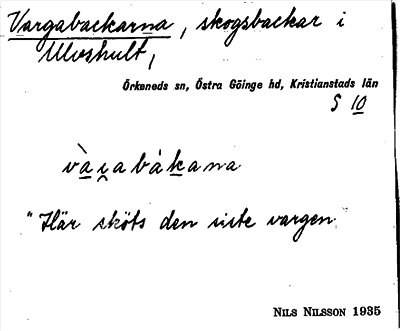 Vargabackarna, skogsbackar i
Ulvshult,
Örkeneds sn, Östra Göinge hd, Kristianstads län
S 10
vàɹabákana
"Här sköts den siste vargen.
NILS NILSSON 1935